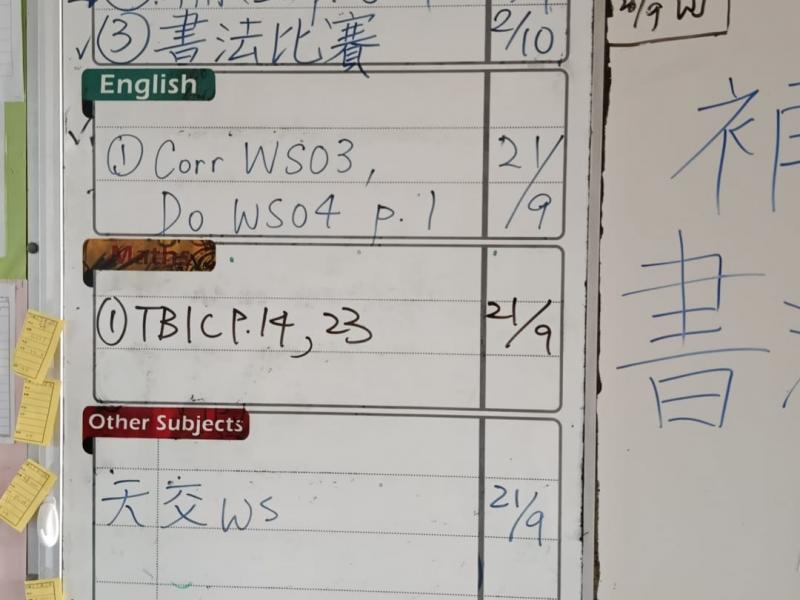 ③ 書法比賽 2/10
English
① Corr WS03, 21/9
Do WS04 p.1
Maths
① TB1C P.14, 23 21/9
Other Subjects
天交 WS 21/9
書